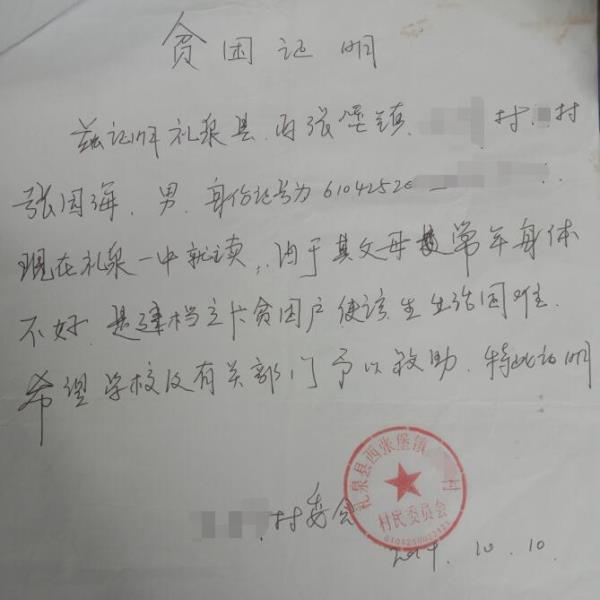 贫困证明
兹证明 礼泉县 西张堡镇 村 村
张国海, 男, 身份证号为 6104252
现在礼泉一中就读, 由于其父母 常年身体
不好, 是建档立卡贫困户 使该生生活困难.
希望学校及有关部门予以救助. 特此证明
村委会
礼泉县西张堡镇 村
村民委员会
10.10.